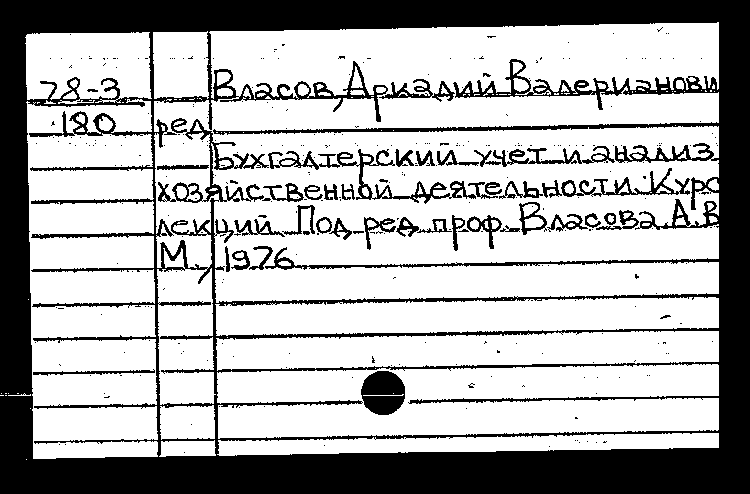 78-3 Власов, Аркадий Валерианови
180 ред.
Бухгалтерский учет и анализ
хозяйственной деятельности. Курс
лекций. Под ред. проф. Власова А.В
М., 1976